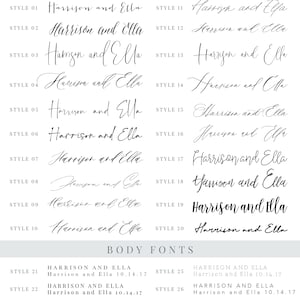 STYLE 01 Harrison and Ella
STYLE 02 Harrison and Ella
STYLE 03 Harrison and Ella
STYLE 04 Harrison and Ella
STYLE 05 Harrison and Ella
STYLE 06 Harrison and Ella
STYLE 07 Harrison and Ella
STYLE 08 Harrison and Ella
STYLE 09 Harrison and Ella
STYLE 10 Harrison and Ella
STYLE 11 Harrison and Ella
STYLE 12 Harrison and Ella
STYLE 13 Harrison and Ella
STYLE 14 Harrison and Ella
STYLE 15 Harrison and Ella
STYLE 16 Harrison and Ella
STYLE 17 Harrison and Ella
STYLE 18 Harrison and Ella
STYLE 19 Harrison and Ella
STYLE 20 Harrison and Ella
BODY FONTS
STYLE 21 HARRISON AND ELLA
Harrison and Ella 10.14.17
STYLE 22 HARRISON AND ELLA
Harrison and Ella 10.14.17
STYLE 25 HARRISON AND ELLA
Harrison and Ella 10.14.17
STYLE 26 HARRISON AND ELLA
Harrison and Ella 10.14.17